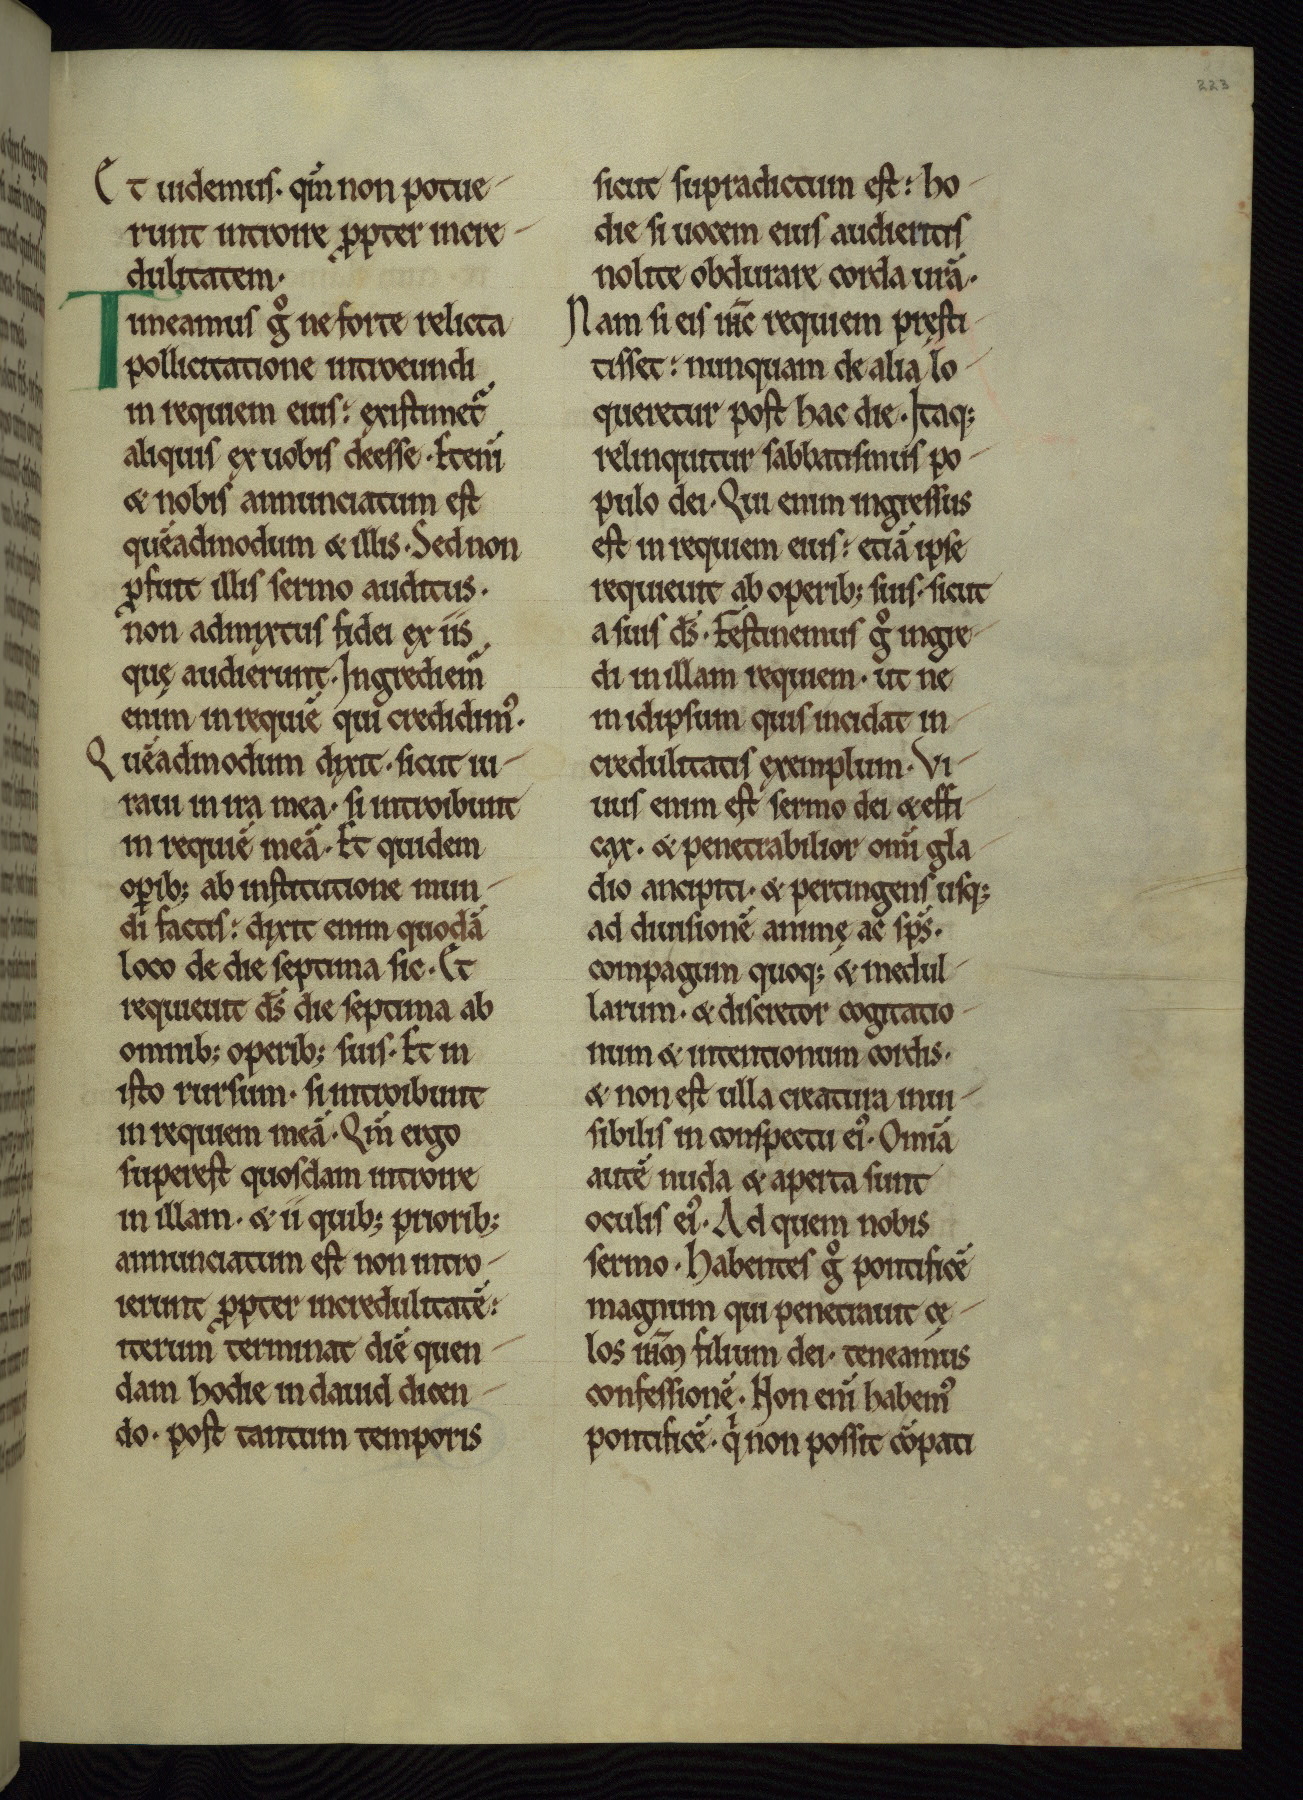 223
Et uidemus. qm̄ non potue-
runt introire ꝓpter incre-
dulitatem.
Timeamus gͦ ne forte relicta
pollicitatione introeundi
in requiem eius: existimet᷑
aliquis ex uobis deesse. Eteni̅
& nobis annunciatum est
quḗadmodum & illis. Sed non
ꝓfuit illis sermo auditus.
non admixtus fidei ex iis
quę audierunt. Ingrediem᷑
enim in requiē qui credidimꝰ.
Quēadmodum dixit. sicut iu-
raui in ira mea. si introibunt
in requiē meā. Et quidem
oꝑib; ab institutione mun-
di factis: dixit enim quodā
loco de die septima sic. Et
requieuit ds̄ die septima ab
omnib; operib; suis. Et in
isto rursum. si introibunt
in requiem meā. Qm̄ ergo
superest quosdam introire
in illam. & ii quib; priorib;
annunciatum est non intro-
ierunt ꝓpter incredulitatē:
iterum terminat diē quen-
dam hodie in dauid dicen-
do. post tantum temporis
sicut supradictum est: ho-
die si uocem eius audieritis
nolite obdurare corda ura̅.
Nam si eis ih̅c requiem pręsti-
tisset: nunquam de alia lo-
queretur post hac die. Itaq;
relinquitur sabbatismus po-
pulo dei. Qui enim ingressus
est in requiem eius: etiā ipse
requieuit ab operib; suis. sicut
a suis ds̄. Festinemus gͦ ingre-
di in illam requiem. ut ne
in idipsum quis incidat in-
credulitatis exemplum. Vi-
uus enim est sermo dei & effi-
cax. & penetrabilior omi̅ gla-
dio ancipiti. & pertingens usq;
ad diuisionē animę ac sp̅s.
compagum quoq; & medul-
larum. & discretor cogitatio-
num & intentionum cordis.
& non est ulla creatura inui-
sibilis in conspectu eiꝰ. Omia̅
autē nuda & aperta sunt
oculis eiꝰ. Ad quem nobis
sermo. Habentes gͦ pontificē
magnum qui penetrauit cę-
los ih̅m filium dei. teneamus
confessionē. Non eni̅ habemꝰ
pontificē. qⁱ non possit cōpati